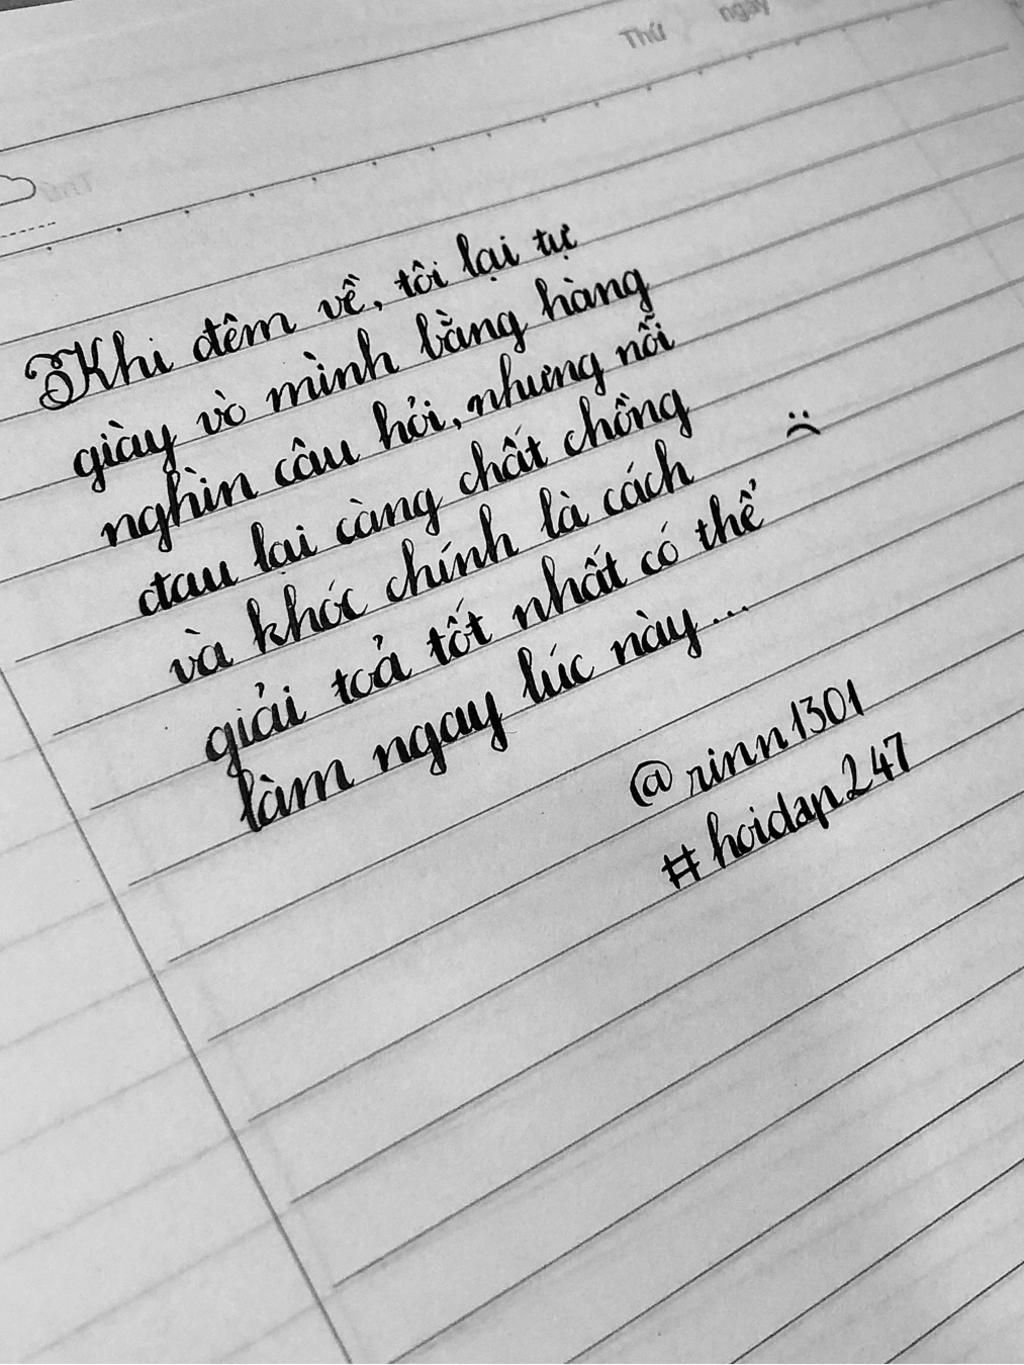 Thứ ngày
Khi đêm về, tôi lại tự
giày vò mình bằng hàng
nghìn câu hỏi, nhưng nỗi
đau lại càng chất chồng
và khóc chính là cách
giải toả tốt nhất có thể
làm ngay lúc này...
@rinn1301
#hoidap247